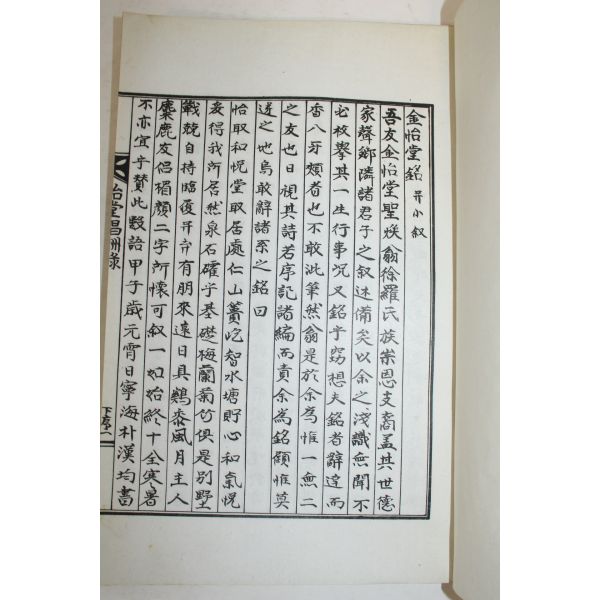 金怡堂銘 并小叙
吾友金怡堂聖燦翁徐羅氏族崇恩支裔盖其世德
家聲鄉隣諸君子之叙述備矣以余之淺識無聞不
必枚擧其一生行事况又銘乎竊想夫銘者辭達而
香人牙頰者也不敢泚筆然翁是於余為惟一無二
之友也日視其詩若序記諸編而責余為銘顧惟莫
逆之地烏敢辭諸系之銘曰
怡取和悅堂取居處仁山簣屹智水塘貯心和氣悅
爰得我所居然泉石礭乎基礎梅蘭菊竹俱是別墅
戰兢自持臨履幷弆有朋來遠日具鷄黍風月主人
麋鹿友侶楣顔二字所懷可叙一如始終十全寒暑
不亦宜乎贊此數語甲子歲元宵日寧海朴漢均書
怡堂昌酬錄
下序二